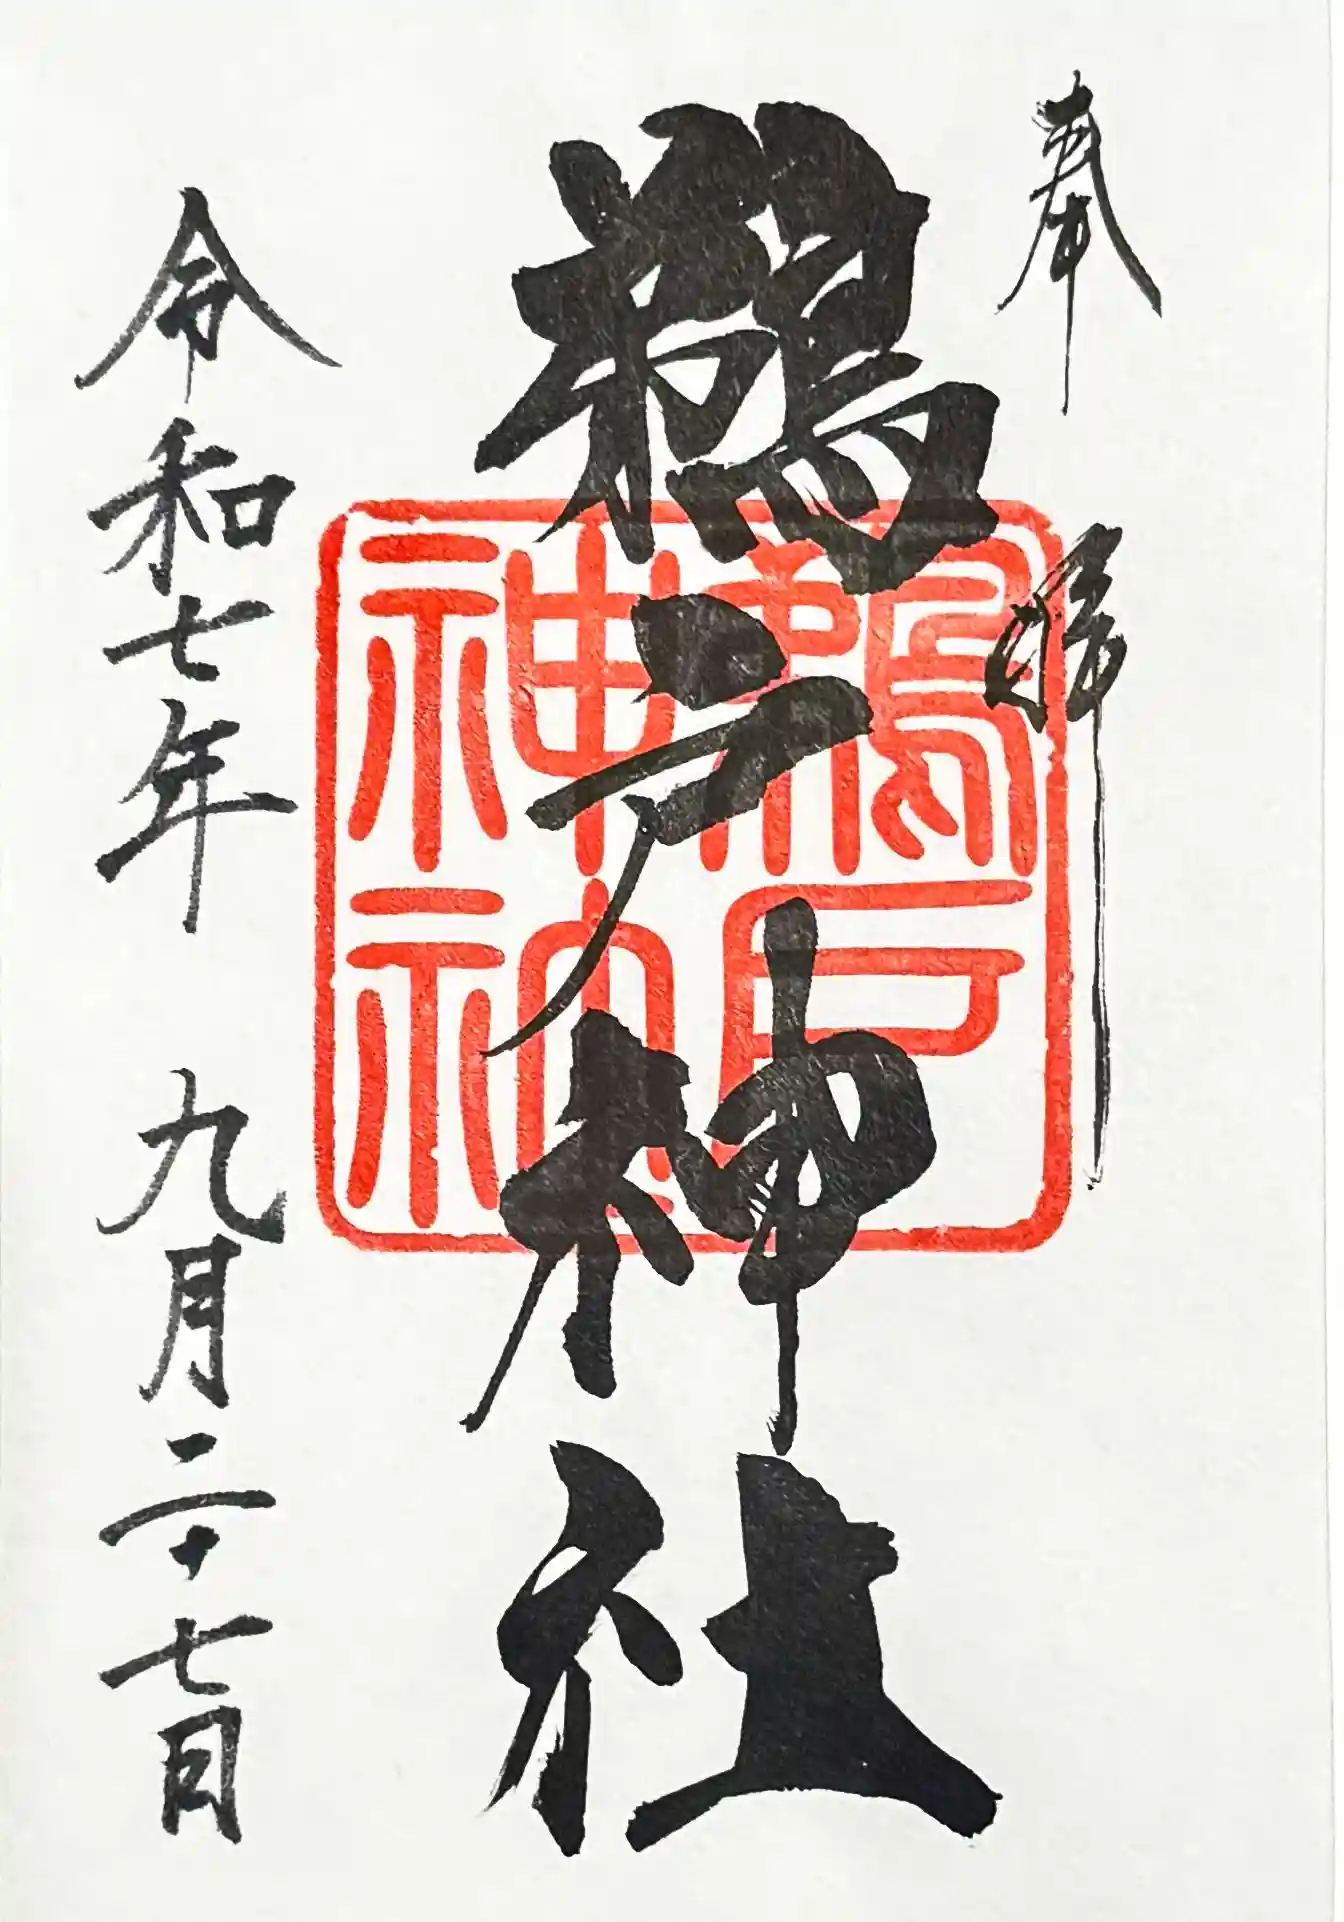 奉拝
鵜戸神社
令和七年 九月二十七日
鵜戸
神社